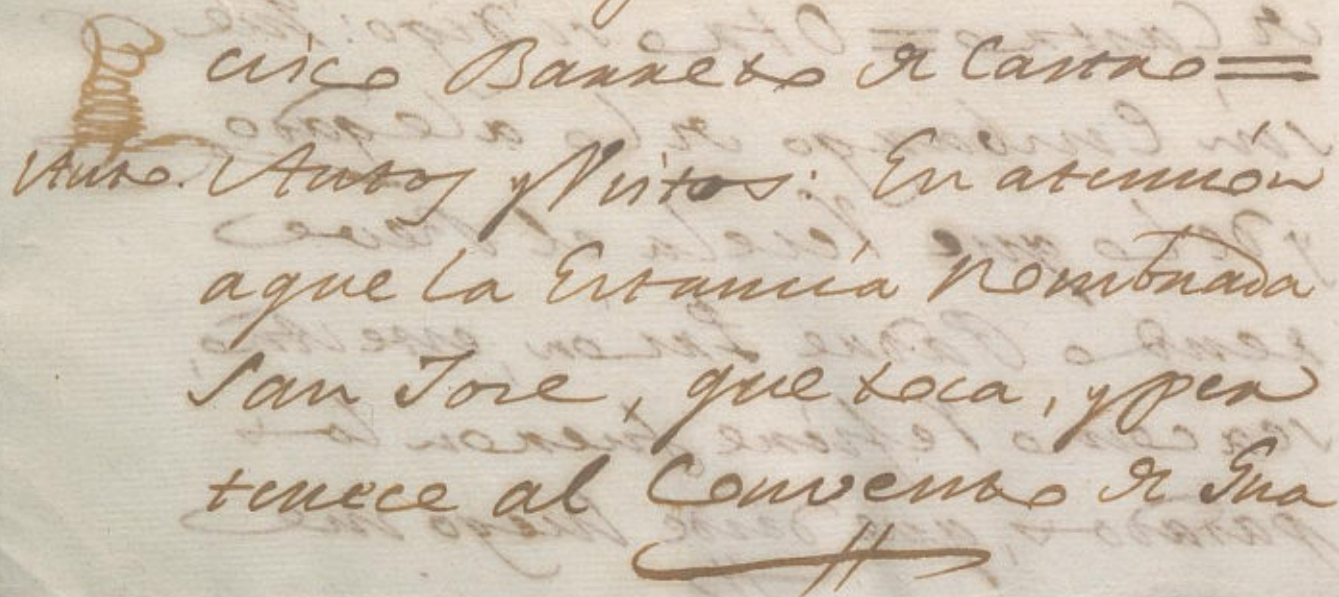 cisco Barreto de Castro =
Auto. Autos y Vistos: En atencion
aque la Estancia nombrada
San Jose, que toca, y per
tenece al Convento de Gua